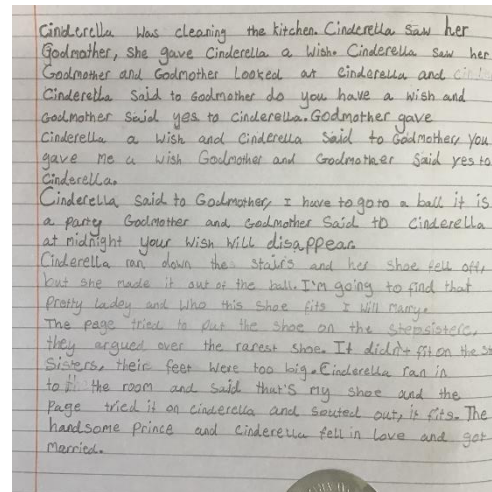 Cinderella was cleaning the kitchen. Cinderella saw her
Godmother, she gave Cinderella a wish. Cinderella saw her
Godmother and Godmother Looked at Cinderella and
Cinderella said to Godmother do you have a wish and
Godmother said yes to Cinderella. Godmother gave
Cinderella a wish and Cinderella said to Godmother, you
gave me a wish Godmother and Godmother said yes to
Cinderella.
Cinderella said to Godmother, I have to go to a ball it is
a party Godmother and Godmother said to Cinderella
at midnight your wish will disappear.
Cinderella ran down the stairs and her shoe fell off,
but she made it out of the ball. I'm going to find that
pretty ladey and who this shoe fits I will marry.
The page tried to put the shoe on the
they argued over the rarest shoe. It didn't fit on the
Sisters, their feet were too big. Cinderella ran in
to the room and said that's my shoe and the
page tried it on cinderella and souted out, it fits. The
handsome prince and Cinderella fell in love and got
married.